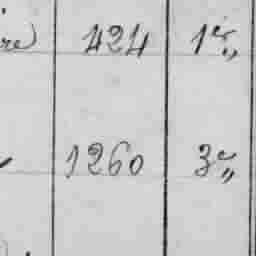 re 424 1e „
1260 3e „